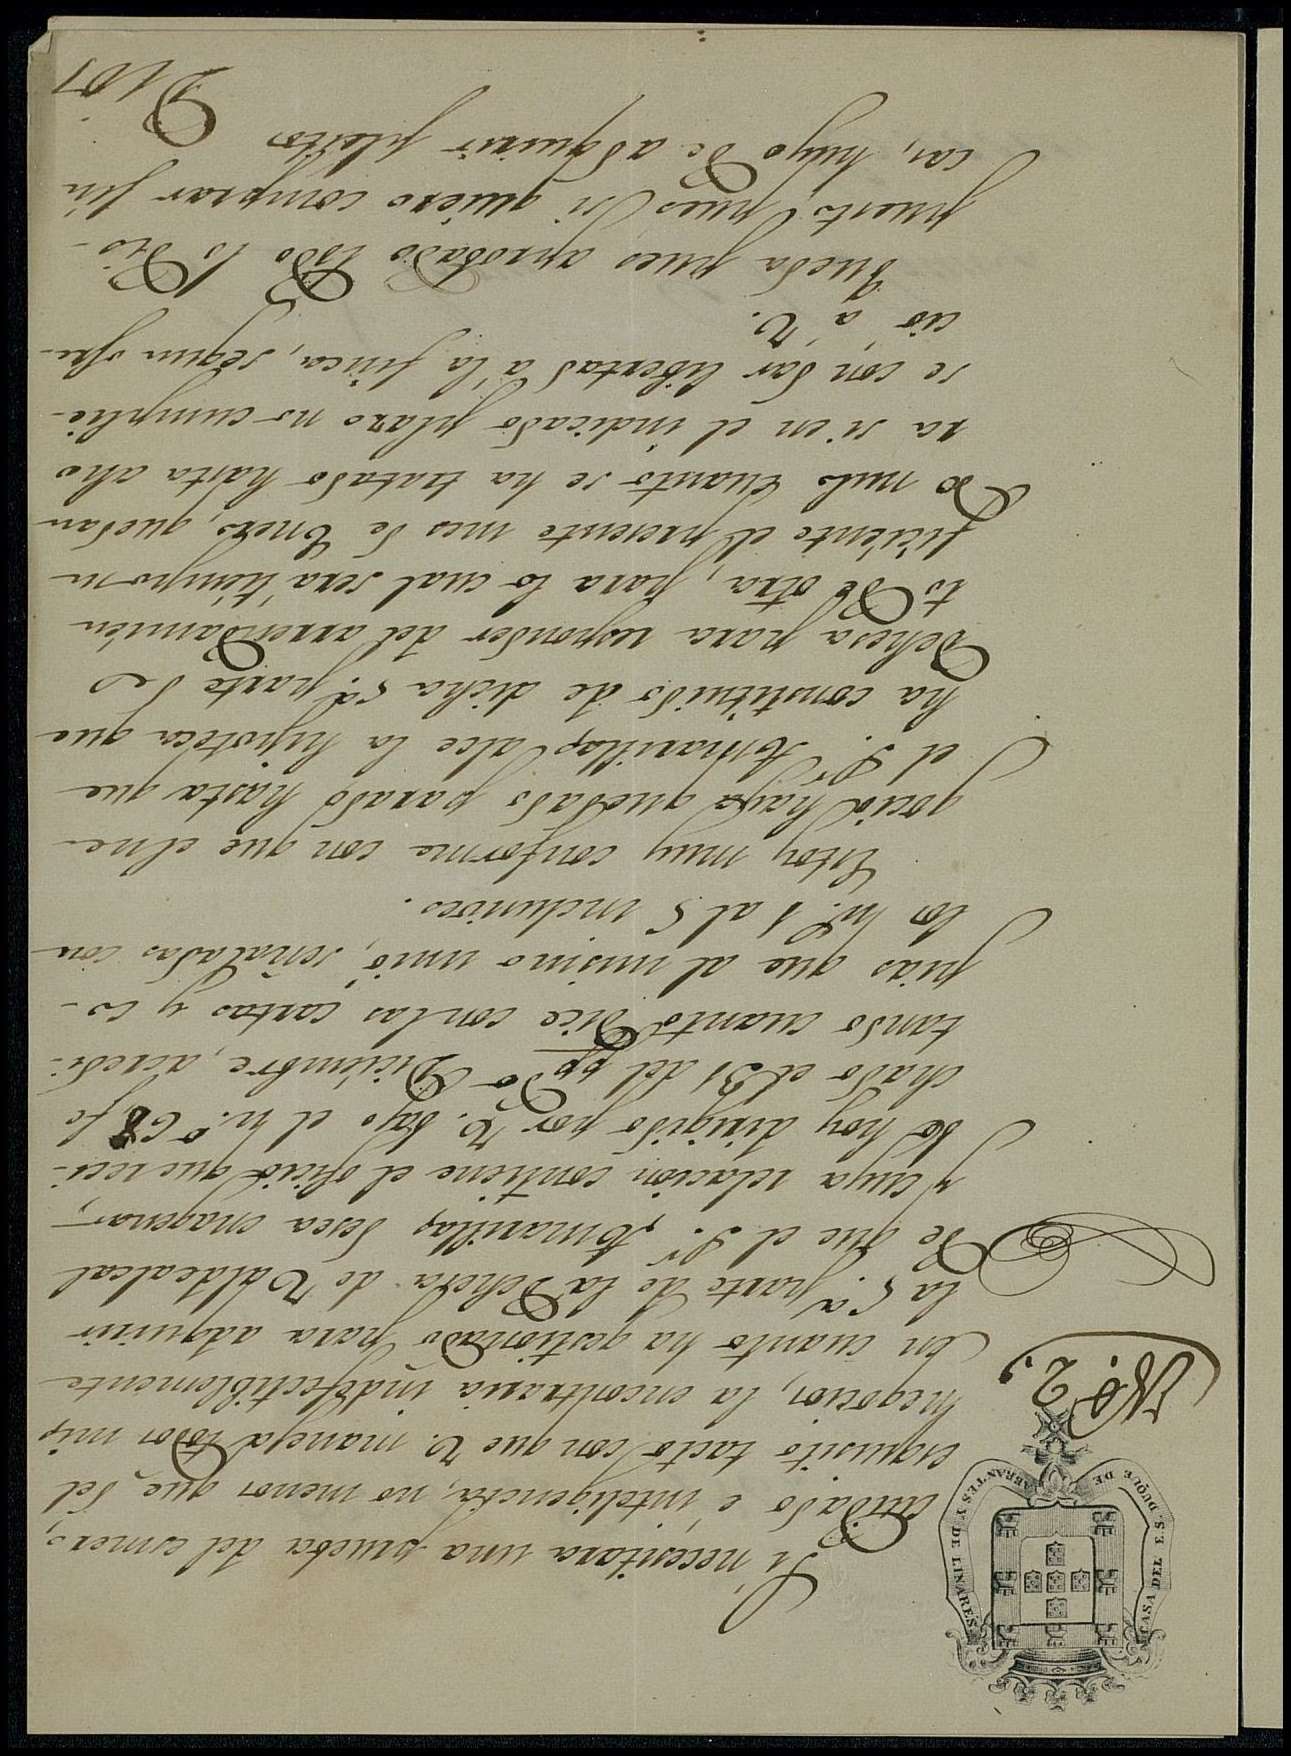 CASA DEL E.S. DUQUE DE ABRANTES Y DE LINARES
Nº. 2.
Si necesitara una prueba del esmero,
cuidado é inteligencia, no menor que, del
esquisito tacto con que V. maneja todos mis
negocios, la encontraria indefectiblemente
en cuanto ha gestionado para adquirir
la 5ª parte de la Dehesa de Valdealcal
de que el Sr. Amarillas desea enagenar,
y cuya relacion contiene el oficio que reci-
bo hoy dirigido por V. bajo el n.º 68 fe
chado el 31 del ppdo Diciembre, acredi-
tando cuanto dice con las cartas y co-
pias que al mismo unió, señaladas con
los nº. 1 al 5 inclusives.
Estoy muy conforme con que el ne-
gocio haya quedado parado hasta que
el Sr. Amarillas alce la hipoteca que
ha constituido de dicha 5ª parte de
Dehesa para responder del arrendamien
to de otra, para lo cual será tiempo su
ficiente el presente mes de Enero, quedan
do nulo cuanto se ha tratado hasta aho
ra si en el indicado plazo no cumplie-
se con dar libertad á la finca, segun ofre-
ció á V.
Queda pues aprobado todo lo dis-
puesto, pues si quiero comprar fin
cas, huyo de adquirir pleitos